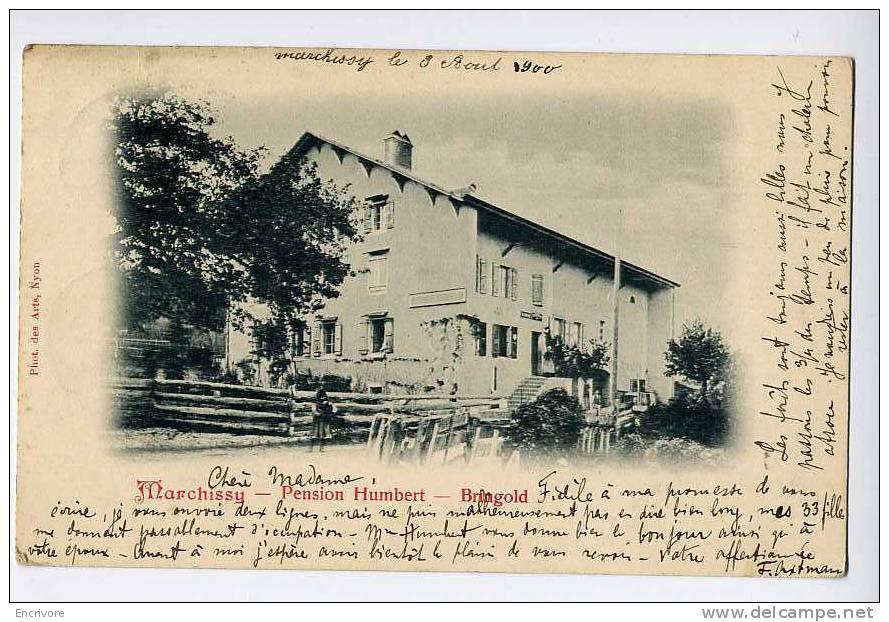 Marchissy le 8 Aout 1900
Phot. des Arts, Nyon
Marchissy — Pension Humbert — Bringold
Chère Madame,
Fidèle à ma promesse de vous
écrire, j'vous envoie deux lignes, mais ne puis malheureusement pas en dire bien long, mes 33 fille
me donnant passablement d'occupation — Mme Humbert vous donne bien le bonjour ainsi qu'à
votre époux — Quant à moi j'espère avoir bientôt le plaisir de vous revoir — Votre affectionnée
F.
Les forêts sont toujours aussi belles nous y
passons les 3/4 du temps — il fait un chaleur
atroce. Je voudrais un peu de pluie pour pouvoir
rester à la maison.
Encrivore
www.delcampe.net